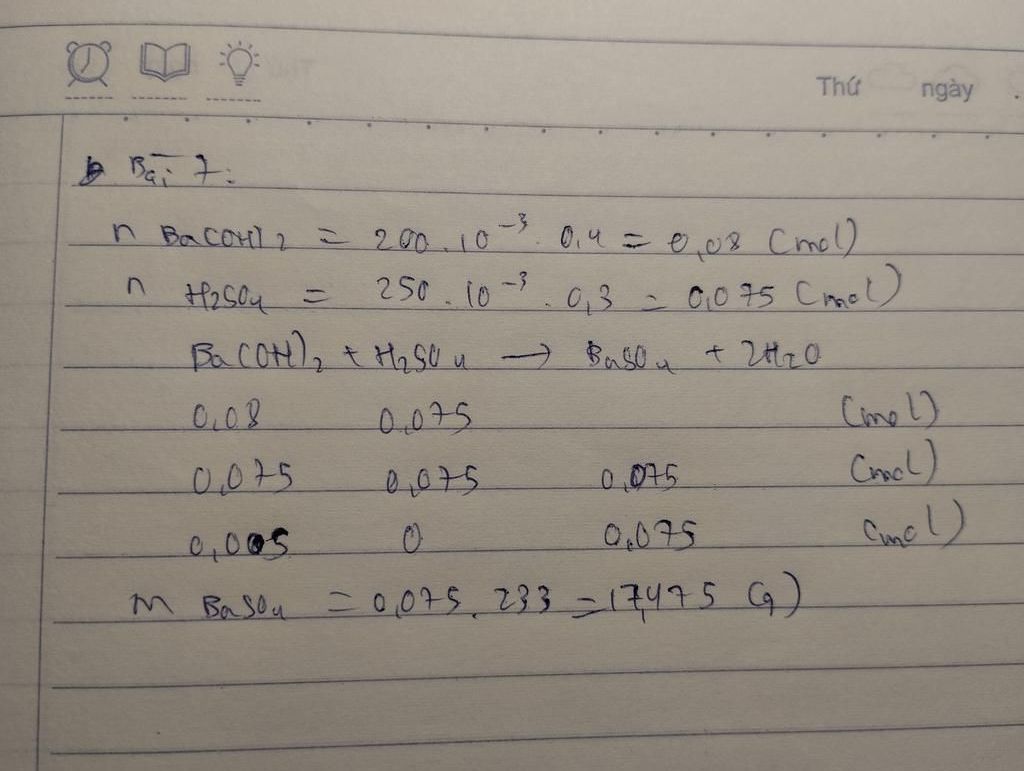 Thứ ngày .
Bài 7:
n Ba(OH)2 = 200.10⁻³.0,4 = 0,08 (mol)
n H2SO4 = 250.10⁻³.0,3 = 0,075 (mol)
Ba(OH)2 + H2SO4 → BaSO4 + 2H2O
0,08 0,075 (mol)
0,075 0,075 0,075 (mol)
0,005 0 0,075 (mol)
m BaSO4 = 0,075.233 = 17,475 (g)